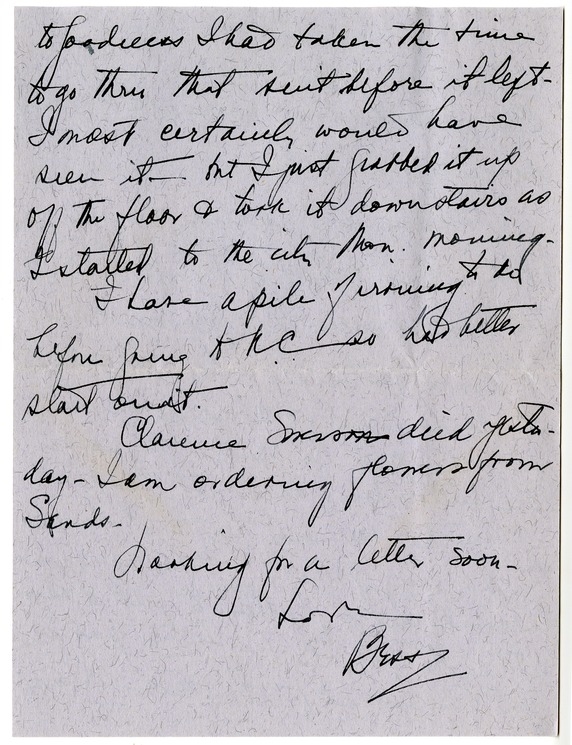 to goodness I had taken the time
to go thru that suit before it left-
I most certainly would have
seen it- but I just grabbed it up
off the floor & took it downstairs as
I started to the city Mon. morning-
I have a pile of ironing to do
before going to K.C. so had better
start on it.
Clarence died yester-
day- I am ordering flowers from
Sands-
Looking for a letter soon-
Love
Bess